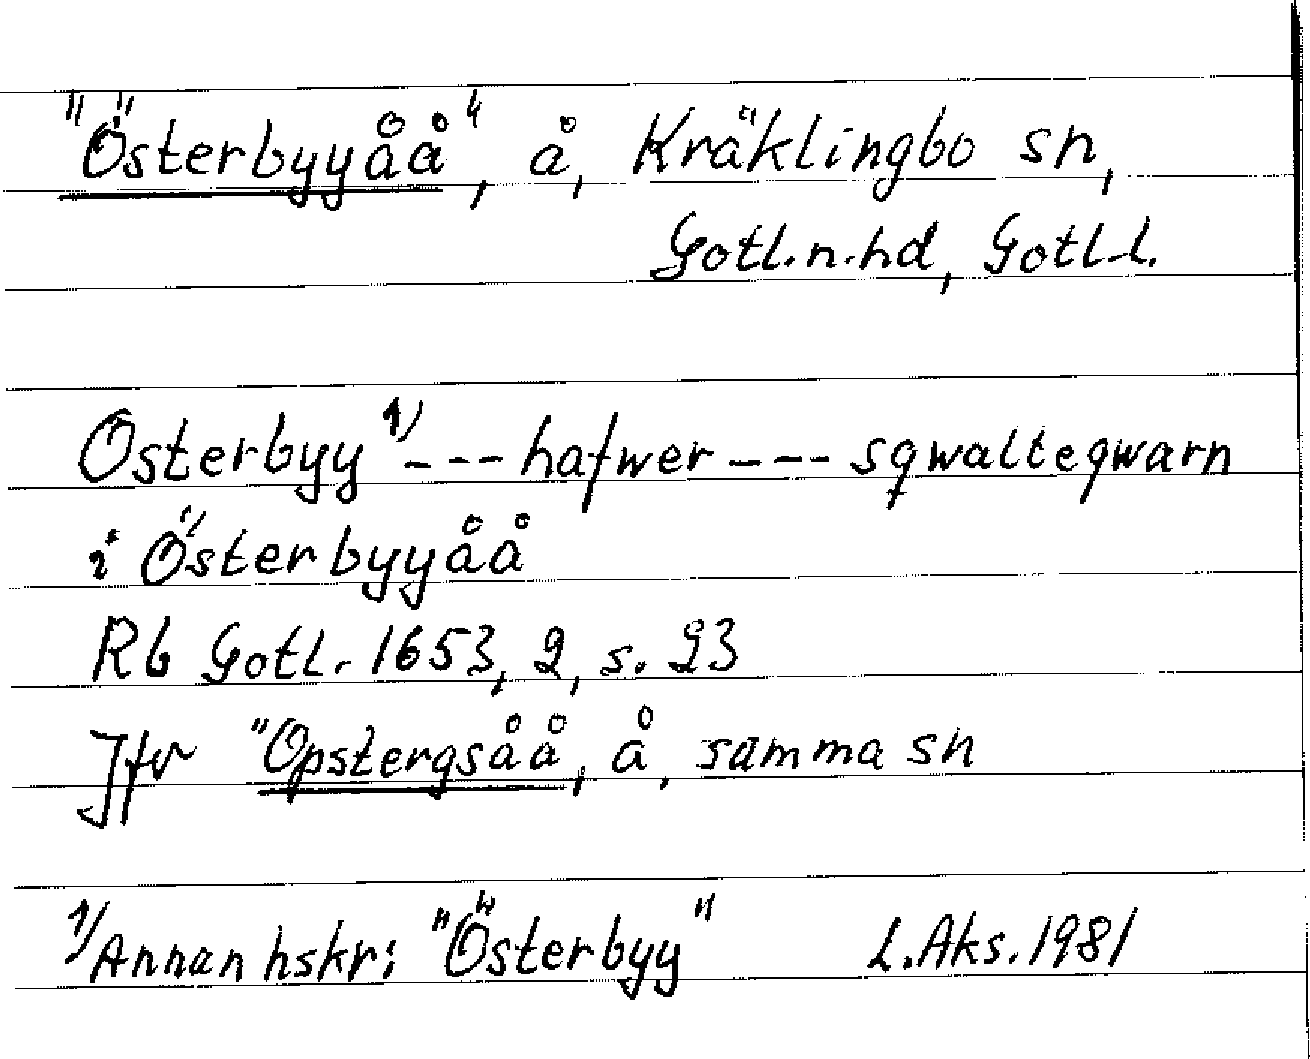 "Österbyyåå", å, Kräklingbo sn,
Gotl.n.hd, Gotl.l.
Osterbyy 1) --- hafwer --- sqwalteqwarn
i Österbyyåå
Rb Gotl. 1653, 2, s. 23
Jfr "Opstergsåå, å, samma sn
1) Annan hskr: "Österbyy" L.Aks. 1981